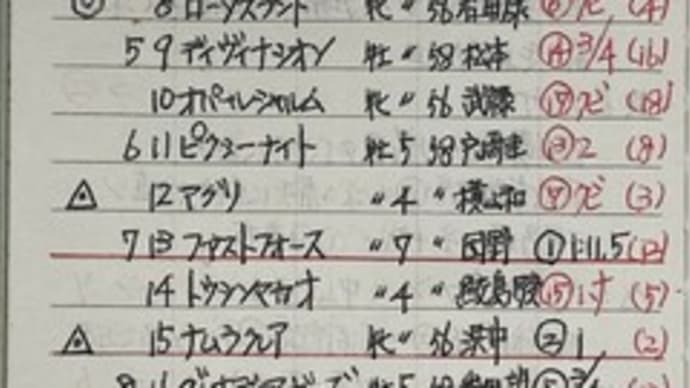 ◎ 8 ロータスランド 牝 〃 56 岩田康 ⑥クビ (4)
5 9 ディヴィナシオン 牡 〃 58 松本 ⑭3/4 (16)
10 オパールシャルム 牝 〃 56 武藤 クビ (18)
6 11 ピクシーナイト 牡 5 58 戸崎圭 ⑬2 (8)
▲ 12 アグリ 〃 4 〃 横山和 クビ (3)
7 13 ファストフォース 〃 7 〃 団野 ①1:11.5 (12)
14 トウシンマカオ 〃 4 〃 鮫島駿 ⑮1 (5)
▲ 15 ナムラクレア 牝 〃 56 浜中 ②1 (2)